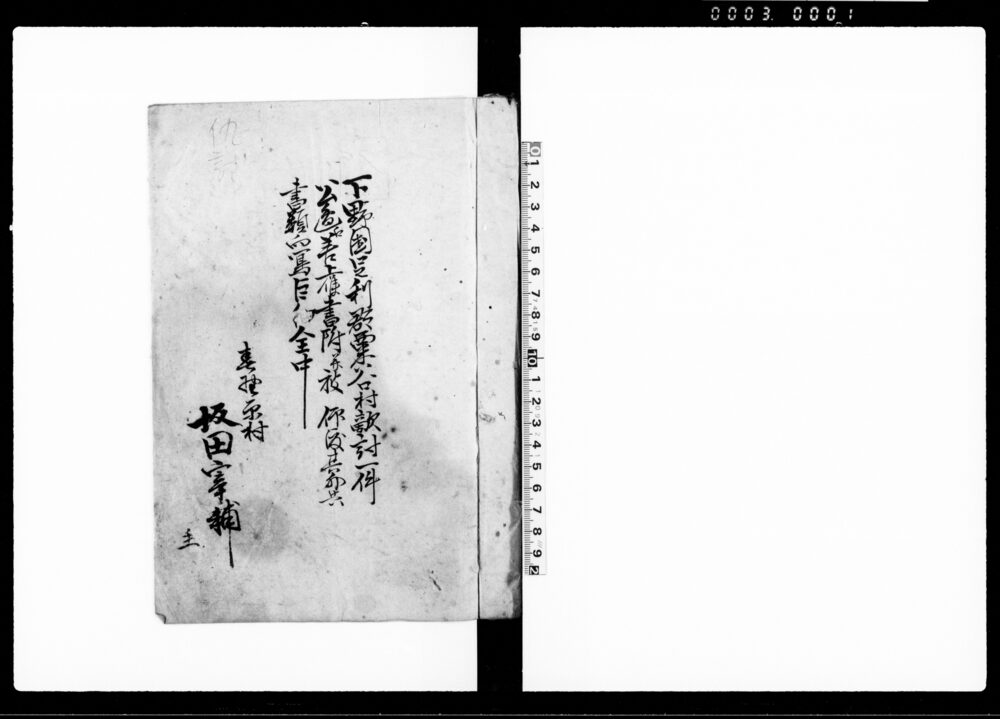 0003. 0001
仇討
下野国足利郡粟谷村敵討一件
公邉書上候書附并被 仰渡其外共
書類写
全
坂田宰輔
主
0 1 2 3 4 5 6 7 8 9 10 1 2 3 4 5 6 7 8 9 2